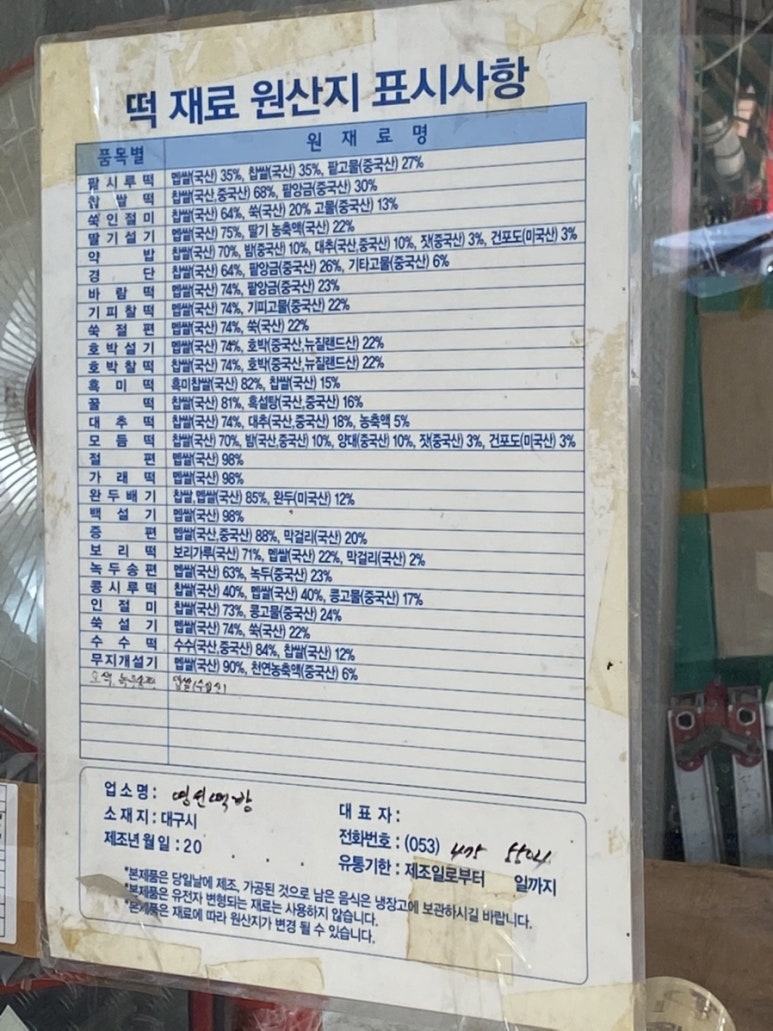 떡 재료 원산지 표시사항
품목별 원 재 료 명
팥시루떡 멥쌀(국산) 35%, 찹쌀(국산) 35%, 팥고물(중국산) 27%
찹쌀떡 찹쌀(국산,중국산) 68%, 팥앙금(중국산) 30%
쑥인절미 찹쌀(국산) 64%, 쑥(국산) 20% 고물(중국산) 13%
딸기설기 멥쌀(국산) 75%, 딸기 농축액(국산) 22%
약밥 찹쌀(국산) 70%, 밤(중국산) 10%, 대추(국산,중국산) 10%, 잣(중국산) 3%, 건포도(미국산) 3%
경단 찹쌀(국산) 64%, 팥앙금(중국산) 26%, 기타고물(중국산) 6%
바람떡 멥쌀(국산) 74%, 팥앙금(중국산) 23%
기피찰떡 멥쌀(국산) 74%, 기피고물(중국산) 22%
쑥절편 멥쌀(국산) 74%, 쑥(국산) 22%
호박설기 멥쌀(국산) 74%, 호박(중국산,뉴질랜드산) 22%
호박찰떡 찹쌀(국산) 74%, 호박(중국산,뉴질랜드산) 22%
흑미떡 흑미찹쌀(국산) 82%, 찹쌀(국산) 15%
꿀떡 찹쌀(국산) 81%, 흑설탕(국산,중국산) 16%
대추떡 찹쌀(국산) 74%, 대추(국산,중국산) 18%, 농축액 5%
모듬떡 찹쌀(국산) 70%, 밤(국산,중국산) 10%, 양대(중국산) 10%, 잣(중국산) 3%, 건포도(미국산) 3%
절편 멥쌀(국산) 98%
가래떡 멥쌀(국산) 98%
완두배기 찹쌀,멥쌀(국산) 85%, 완두(미국산) 12%
백설기 멥쌀(국산) 98%
증편 멥쌀(국산,중국산) 88%, 막걸리(국산) 20%
보리떡 보리가루(국산) 71%, 멥쌀(국산) 22%, 막걸리(국산) 2%
녹두송편 멥쌀(국산) 63%, 녹두(중국산) 23%
콩시루떡 찹쌀(국산) 40%, 멥쌀(국산) 40%, 콩고물(중국산) 17%
인절미 찹쌀(국산) 73%, 콩고물(중국산) 24%
쑥설기 멥쌀(국산) 74%, 쑥(국산) 22%
수수떡 수수(국산,중국산) 84%, 찹쌀(국산) 12%
무지개설기 멥쌀(국산) 90%, 천연농축액(중국산) 6%
업소명 :
소재지 : 대구시
제조년월일 : 20 . . .
대표자 :
전화번호 : (053)
유통기한 : 제조일로부터 일까지
*본제품은 당일날에 제조, 가공된 것으로 남은 음식은 냉장고에 보관하시길 바랍니다.
*본제품은 유전자 변형되는 재료는 사용하지 않습니다.
*본제품은 재료에 따라 원산지가 변경 될 수 있습니다.